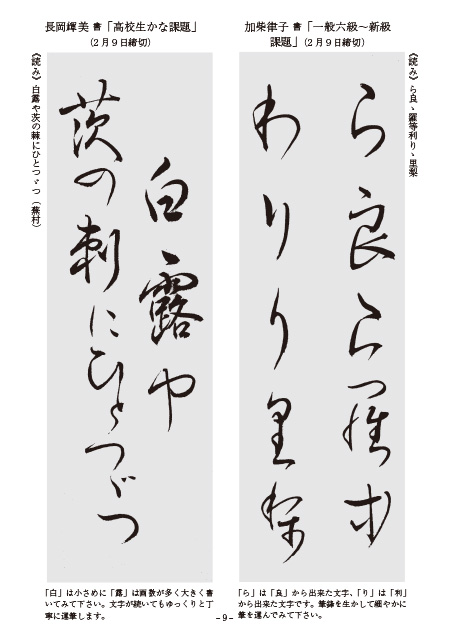 長岡輝美 書「高校生かな課題」
(2月9日締切)
《読み》白露や茨の棘にひとつゞつ(蕪村)
白露や
茨の刺にひとつゞつ
「白」は小さめに「露」は画数が多く大きく書
いてみて下さい。文字が続いてもゆっくりと丁
寧に運筆します。
加柴律子 書「一般六級～新級
課題」(2月9日締切)
《読み》ら良ゝ羅等利りゝ里梨
ら良ら羅等
利りり里梨
「ら」は「良」から出来た文字、「り」は「利」
から出来た文字です。筆鋒を生かして細やかに
筆を運んでみて下さい。
- 9 -